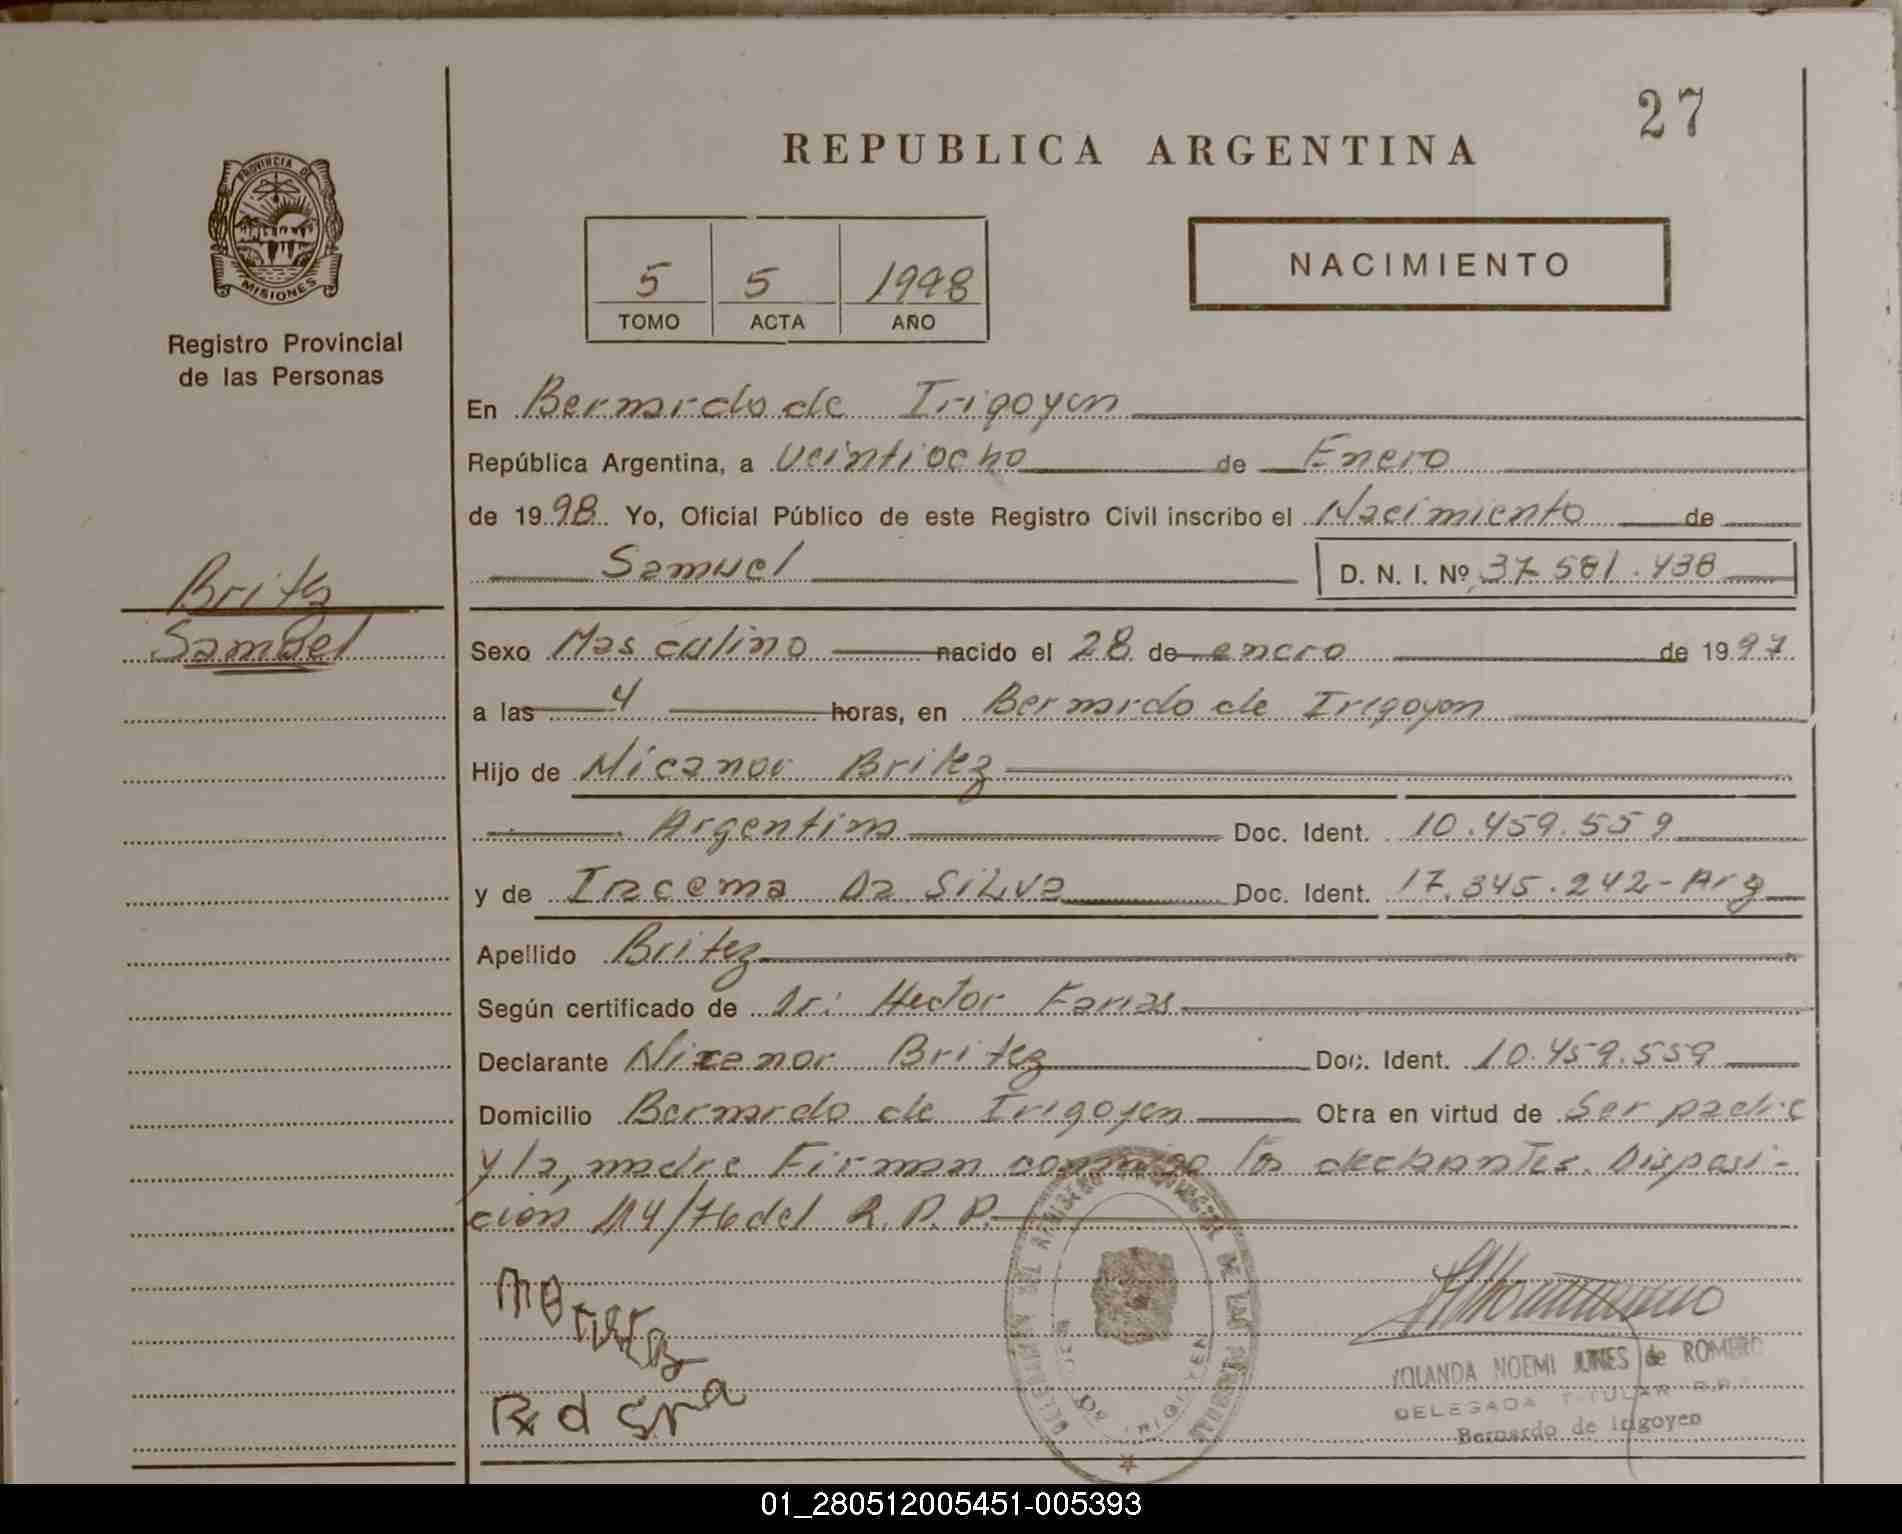 27
REPUBLICA ARGENTINA
PROVINCIA DE
MISIONES
Registro Provincial
de las Personas
5 5 1998
TOMO ACTA AÑO
NACIMIENTO
En Bernardo de Irigoyen
República Argentina, a veintiocho de Enero
de 1998 Yo, Oficial Público de este Registro Civil inscribo el Nacimiento de
Samuel D. N. I. Nº 37.581.438
Britez
Samuel
Sexo Masculino nacido el 28 de enero de 1997
a las 4 horas, en Bernardo de Irigoyen
Hijo de Nicanor Britez
Argentina Doc. Ident. 10.459.559
y de Iracema Da Silva Doc. Ident. 17.345.242-Arg
Apellido Britez
Según certificado de Dr: Hector Farias
Declarante Nicanor Britez Doc. Ident. 10.459.559
Domicilio Bernardo de Irigoyen Obra en virtud de Ser padre
y la madre Firman conmigo los declarantes. Disposi-
cion 114/76 del R.P.P.
YOLANDA NOEMI JUNES de ROMERO
DELEGADA TITULAR R.P.
Bernardo de Irigoyen
01_280512005451-005393